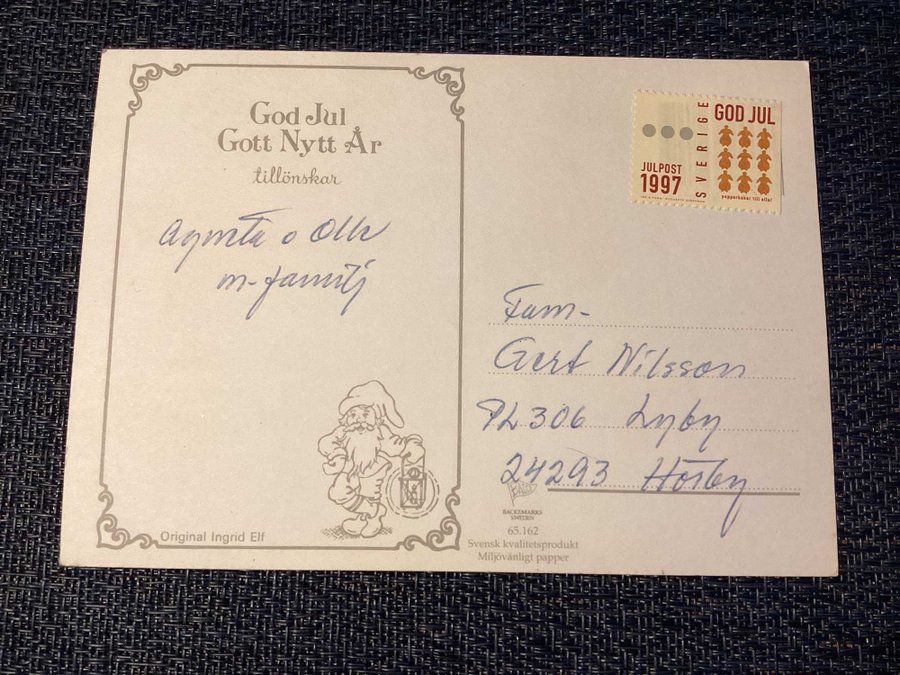 God Jul
Gott Nytt År
tillönskar
Agneta o Olle
m-familj
Original Ingrid Elf
JULPOST
1997
SVERIGE
GOD JUL
pepparkakor till alla!
Fam-
Gert Nilsson
PL 306 Lyby
24293 Hörby
BACKEMARKS
SWEDEN
65.162
Svensk kvalitetsprodukt
Miljövänligt papper